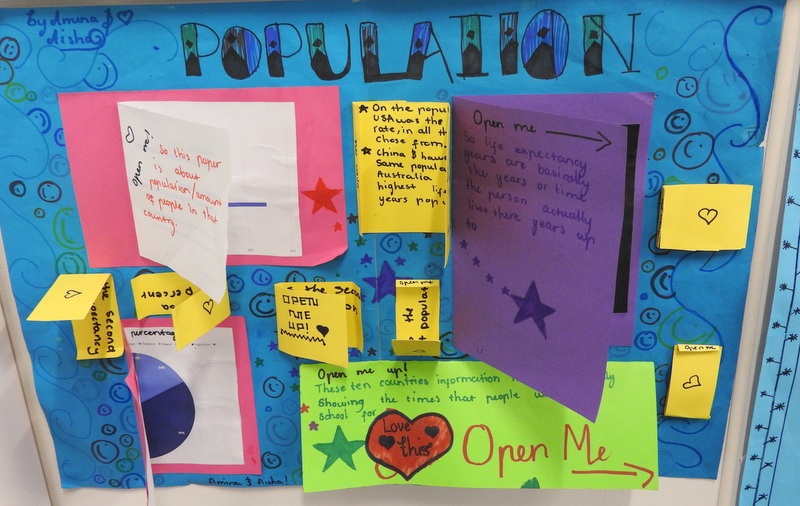 by Amina &
Aisha
POPULATION
open me!
So this paper
is about
population/amount
of people in that
country.
On the popu
USA was the
rate, in all th
chose from.
China & hawa
Same popula
Australia
highest life
years popu
Open me
So life expectancy
years are basically
the years or time
the person actually
likes there years up
to
the second
expectancy
percent
percentag
the second
OPEN
ME
UP!
open me
the
t populat
open me
Open me up!
These ten countries information
Showing the times that people w
School for
Love
this
Open Me
Amina & Aisha!